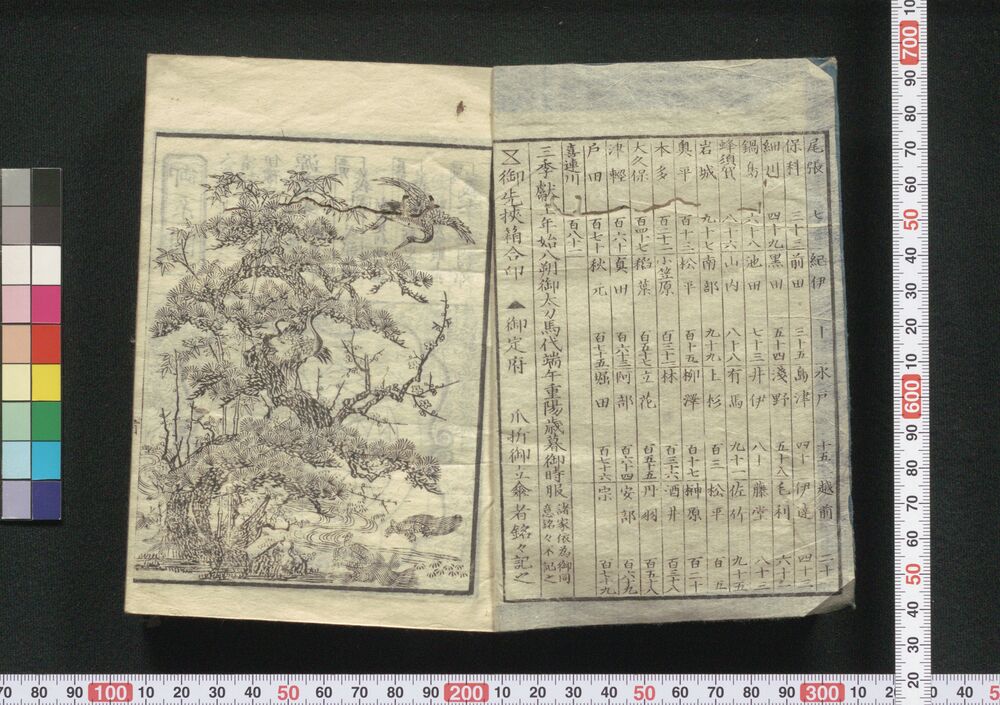 尾張 七 紀伊 十 水戸 十五 越前 二十
保科 三十三 前田 三十五 島津 四十 伊達 四十三
細川 四十九 黒田 五十四 淺野 五十八 毛利 六十一
鍋島 六十八 池田 七十三 井伊 八十 藤堂 八十三
蜂須賀 八十六 山内 八十八 有馬 九十一 佐竹 九十五
岩城 九十七 南部 九十九 上杉 百三 松平 百五
奥平 百十三 松平 百十五 柳澤 百十七 榊原 百二十
本多 百二十二 小笠原 百三十二 林 百三十六 酒井 百三十八
大久保 百四十七 稻葉 百五十七 立花 百五十五 丹羽 百五十八
津輕 百六十 真田 百六十三 阿部 百六十四 安部 百六十九
戸田 百七十 秋元 百七十五 堀田 百七十六 宗 百七十九
喜連川 百八十二
三季献上年始八朔御太刀馬代端午重陽歳暮御時服 諸家依為御同
意銘々不記之
御先挟箱合印 ▲ 御定府 爪折御立傘者銘々記之
700
90
80
70
60
50
40
30
20
10
600
90
80
70
60
50
40
30
20
70 80 90 100 10 20 30 40 50 60 70 80 90 200 10 20 30 40 50 60 70 80 90 300 10 20 30 40